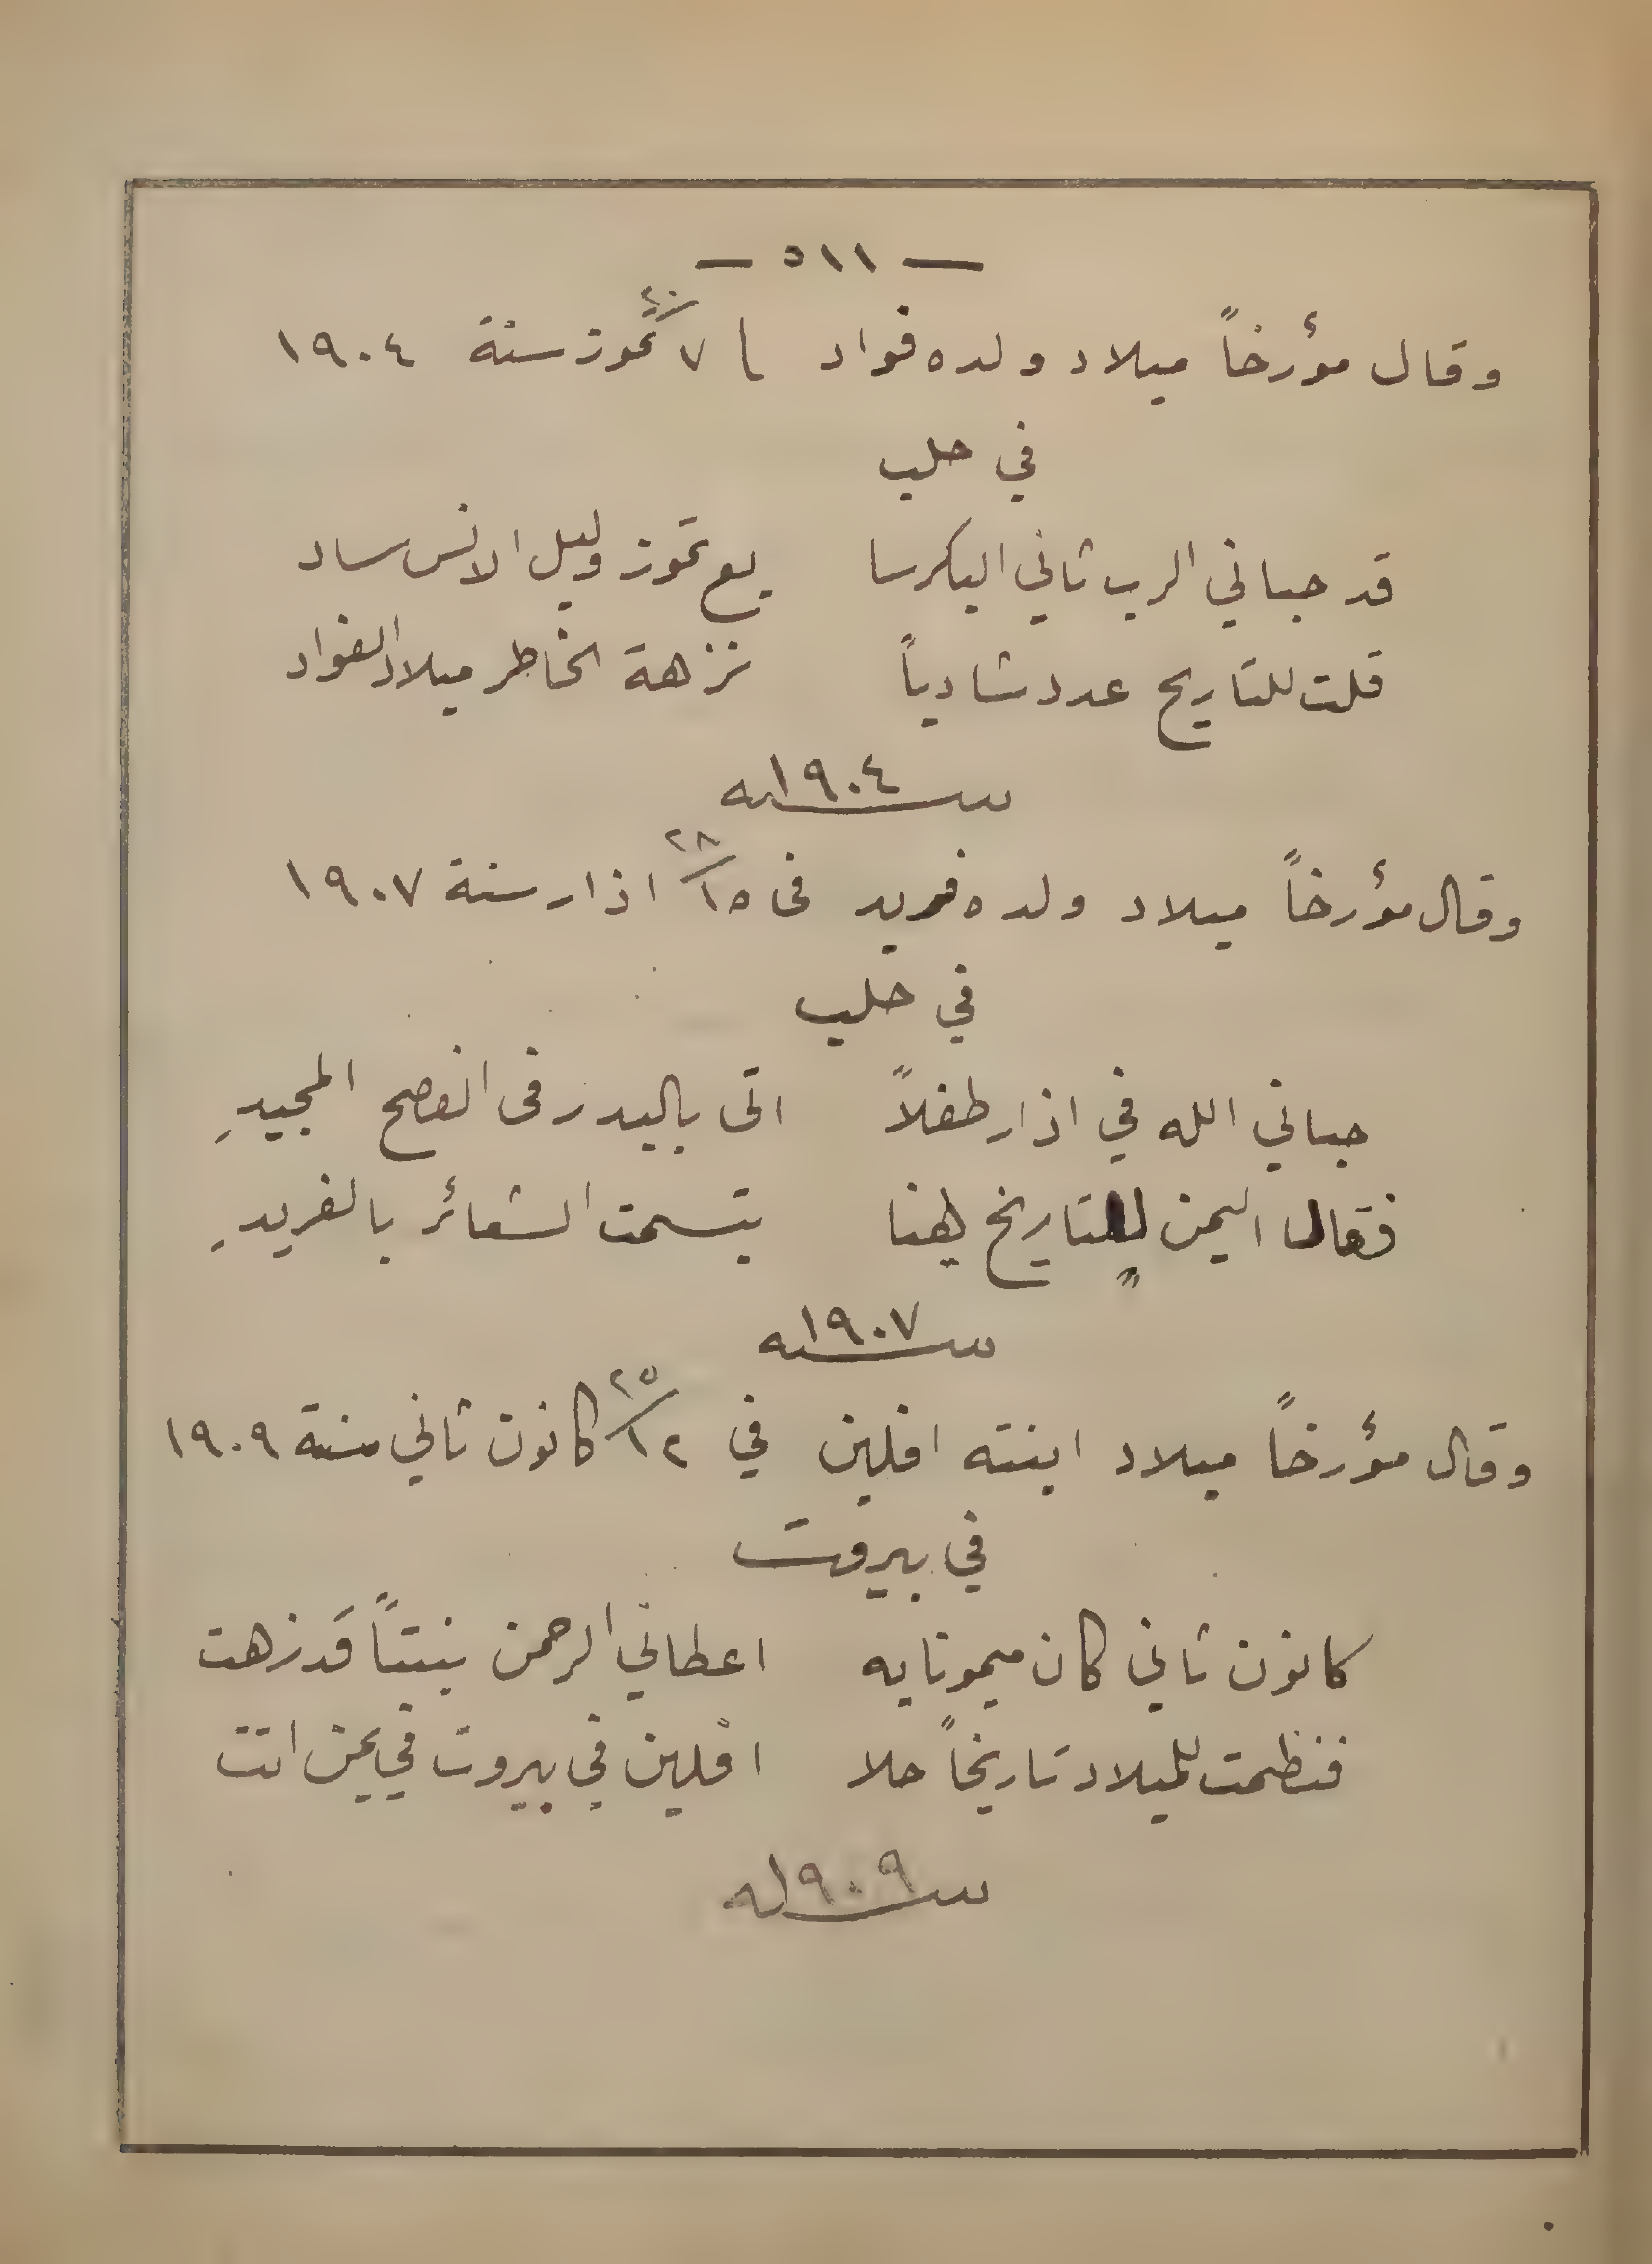 — ٥١١ —
وقال مؤرخاً ميلاد ولده فواد في ٧/٢٠ تموز سنة ١٩٠٤
في حلب
قد حباني الرب ثاني البكر سا   بع تموز وليل الانس ساد
قلت للتاريخ عدد شادياً   نزهة الخاطر ميلاد الفواد
سنة ١٩٠٤
وقال مؤرخاً ميلاد ولده فريد في ١٥/٢٨ اذار سنة ١٩٠٧
في حلب
حباني الله في اذار طفلاً   اتى بالبدر في الفصح المجيدِ
فقال اليمن للتاريخ يهنا   بتسمت الشعائر بالفريدِ
سنة ١٩٠٧
وقال مؤرخاً ميلاد ابنته افلين في ١٢/٢٥ كانون ثاني سنة ١٩٠٩
في بيروت
كانون ثاني كان ميمونا به   اعطاني الرحمن بنتاً قد زهت
فنظمت للميلاد تاريخاً حلا   افلين في بيروت في يمن اتت
سنة ١٩٠٩